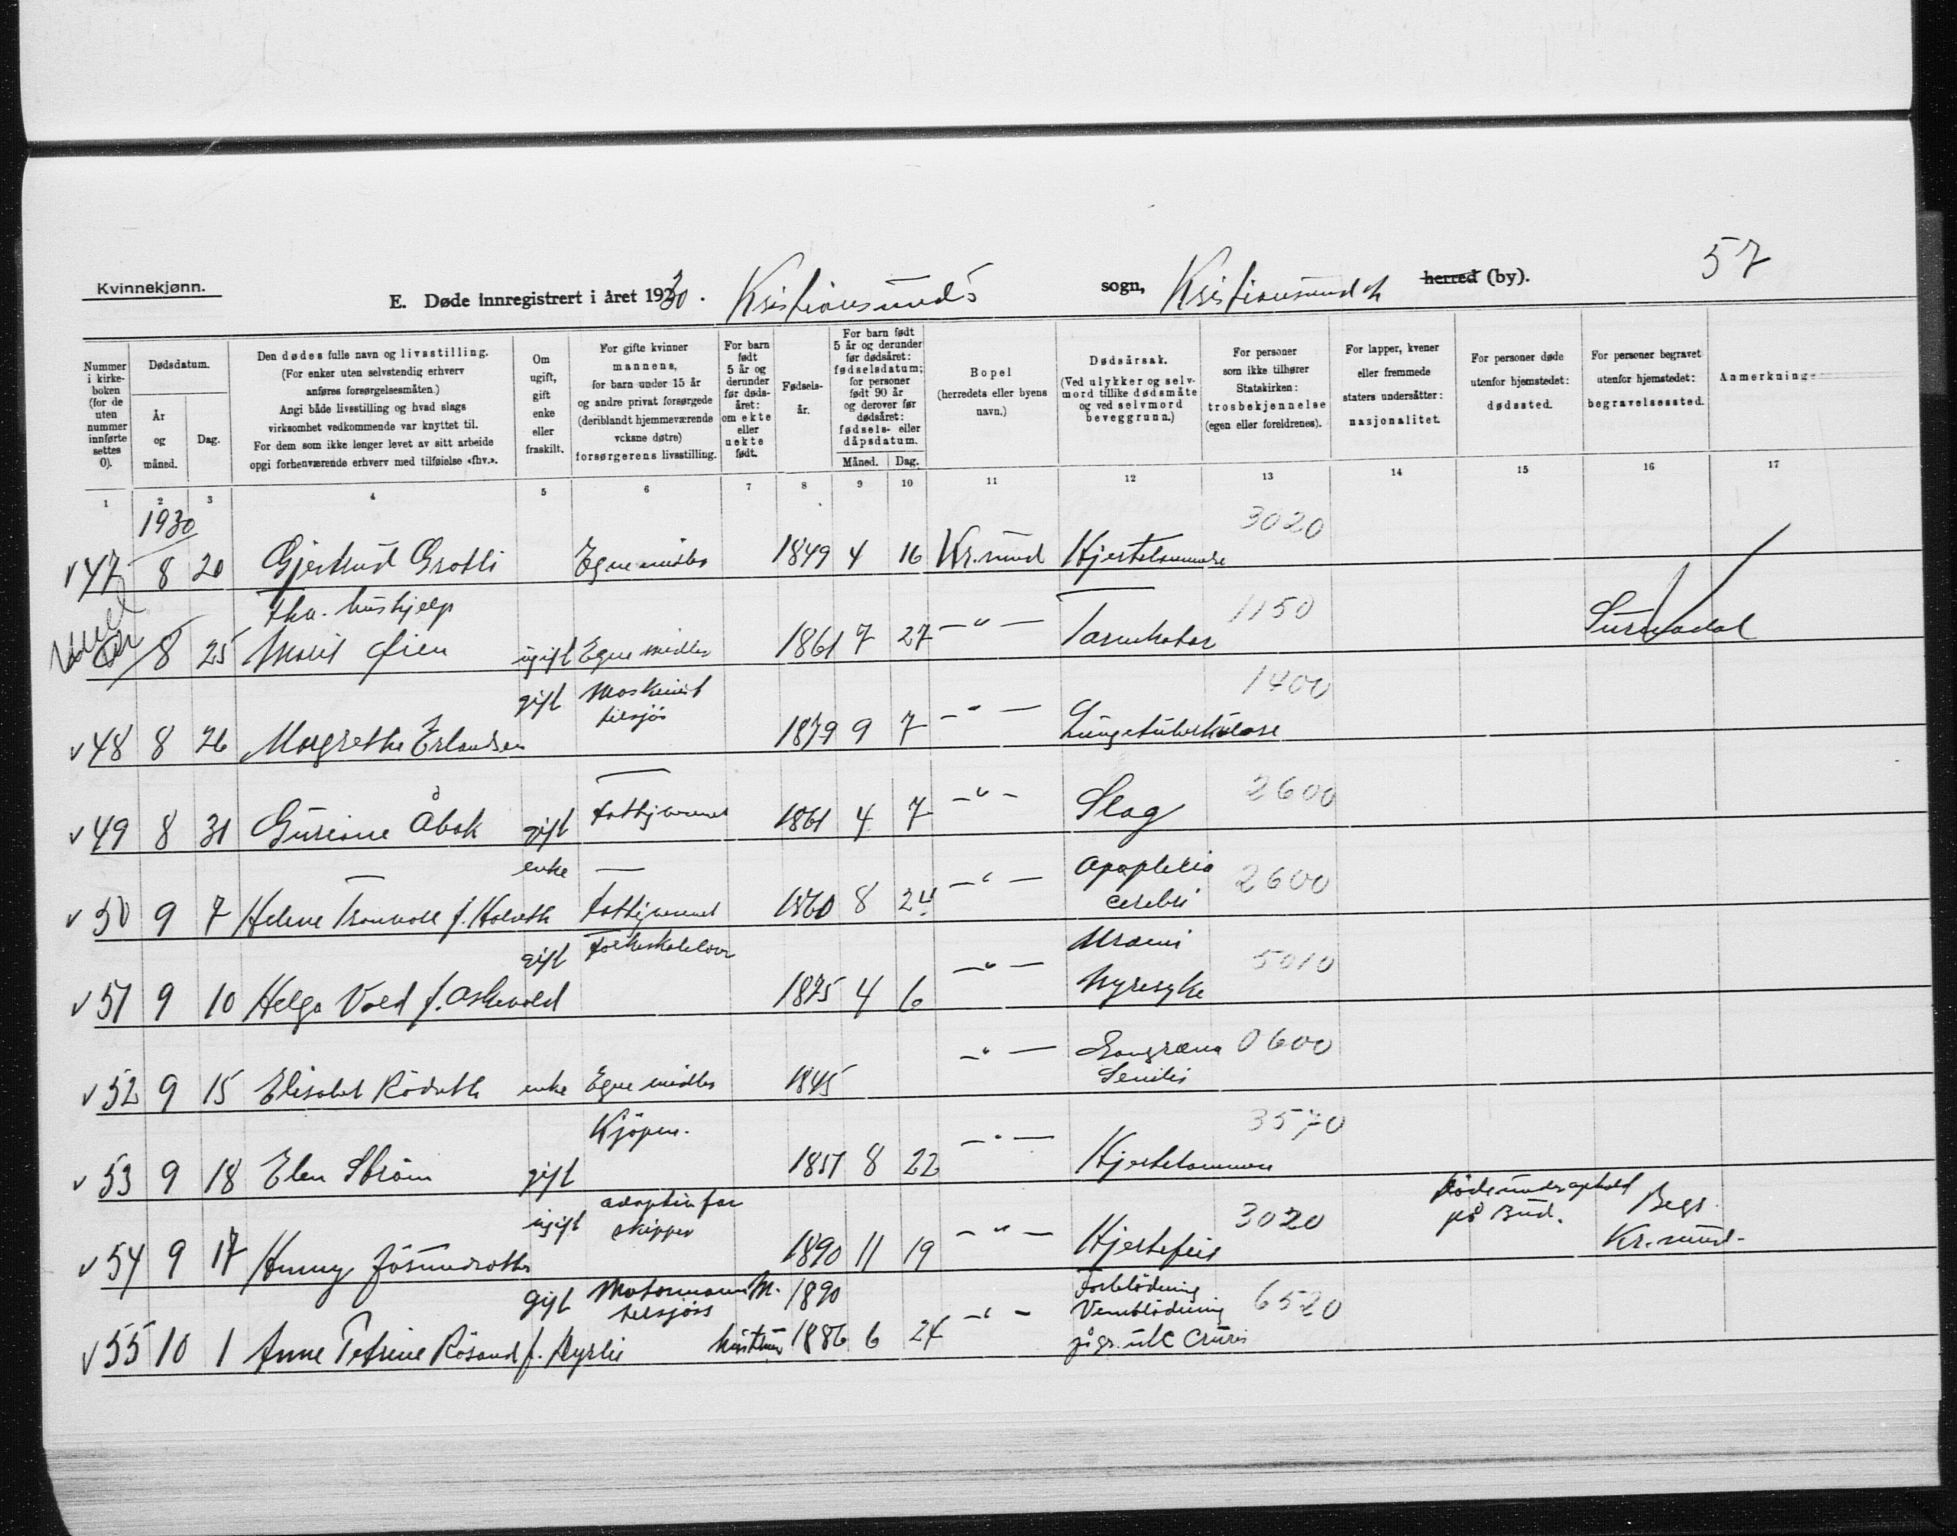 57
Kvinnekjønn.
E. Døde innregistrert i året 1930. Kristiansunds sogn, Kristiansund N herred (by).
Nummer i kirkeboken (for de uten nummer innførte settes 0).
Dødsdatum.
År og måned.
Dag.
Den dødes fulle navn og livsstilling.
(For enker uten selvstendig erhverv
anføres forsørgelsesmåten.)
Angi både livsstilling og hvad slags
virksomhet vedkommende var knyttet til.
For dem som ikke lenger levet av sitt arbeide
opgi forhenværende erhverv med tilføielse «fhv.».
Om ugift, gift enke eller fraskilt.
For gifte kvinner
mannens,
for barn under 15 år
og andre privat forsørgede
(deriblandt hjemmeværende
voksne døtre)
forsørgerens livsstilling.
For barn født 5 år og derunder før dødsåret: om ekte eller uekte født.
Fødselsår.
For barn født
5 år og derunder
før dødsåret:
fødselsdatum;
for personer
født 90 år
og derover før
dødsåret:
fødsels- eller
dåpsdatum.
Måned. Dag.
Bopel
(herredets eller byens
navn.)
Dødsårsak.
(Ved ulykker og selvmord tillike dødsmåte
og ved selvmord
beveggrunn.)
For personer
som ikke tilhører
Statskirken:
trosbekjennelse
(egen eller foreldrenes).
For lapper, kvener
eller fremmede
staters undersåtter:
nasjonalitet.
For personer døde
utenfor hjemstedet:
dødssted.
For personer begravet
utenfor hjemstedet:
begravelsessted.
Anmerkninge
1 2 3 4 5 6 7 8 9 10 11 12 13 14 15 16 17
1930
3020
v 47 8 20 Gjertrud Grotli Egne midler 1849 4 16 Kr.sund Hjertelammelse
fhv. hushjelp 1150
8 25 Marit Øien ugift Egne midler 1861 7 27 —"— Tarmkatar Surnadal
gift Maskinist tilsjøs 1400
v 48 8 26 Margrethe Erlandsen 1879 9 7 —"— Lungetuberkulose
2600
v 49 8 31 Guriane Åbak gift Fattigvesenet 1861 4 7 —"— Slag
enke — Apoplexia cerebri 2600
v 50 9 7 Helene Tranvoll f. Holseth Fattigvesenet 1860 8 24 —"—
gift Folkeskolelærer Uræmi 5010
v 51 9 10 Helga Vold f. Askevold 1875 4 6 —"— Nyresyke
Gangræna 0600
v 52 9 15 Elisabet Rødseth enke Egne midler 1845 —"— Senilis
Kjøpm. 3570
v 53 9 18 Elen Strøm gift 1857 8 22 —"— Hjertelammelse
ugift adoptivfar skipper 3020 på Bud. Begr. Kr.sund.
v 54 9 17 Hunny 1890 11 19 —"— Hjertefeil
gift Motormann tilsjøss M. 1890 Forblødning 6520
v 55 10 1 Anne Petrine Røsand f. Myrlie hustru 1886 6 24 —"— Veneblødning
på gr. ulc Cruris